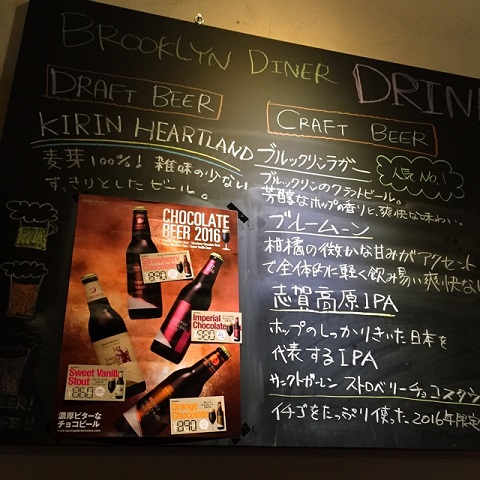 BROOKLYN DINER DRIN
DRAFT BEER
KIRIN HEARTLAND
麦芽100%! 雑味の少ない
すっきりとしたビール。
CHOCOLATE
BEER 2016
Strawberry
Chocolate
890
Imperial
Chocolate
980
Sweet Vanilla
Stout
860
Orange
Chocolate
890
濃厚ビターな
チョコビール
CRAFT BEER
ブルックリンラガー
人気No.1
ブルックリンのクラフトビール。
芳醇なホップの香りと、爽快な味わい。
ブルームーン
柑橘の微かな甘みがアクセント
で全体的に軽く飲み易い爽快な
志賀高原IPA
ホップのしっかりきいた日本を
代表するIPA
サンクトガーレン ストロベリーチョコスタウ
イチゴをたっぷり使った2016年限定